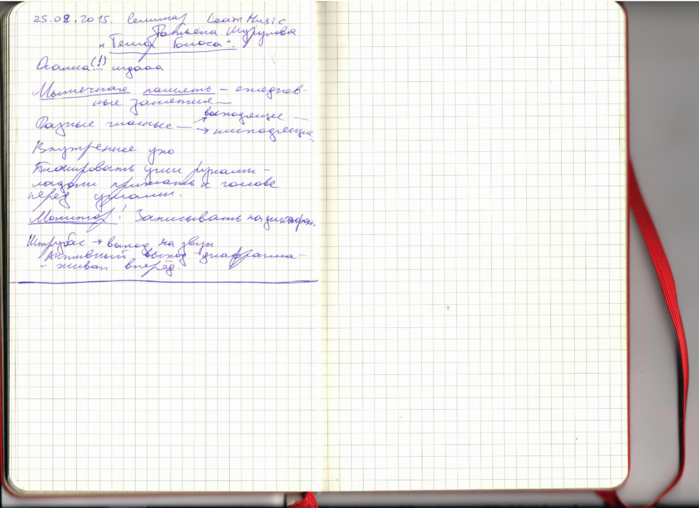 25.08.2015. Семинар LearnMusic
Татьяна Шурупова
"Гений Голоса".
Осанка (!)
Мышечная память – ежеднев-
ные занятия –
Разные гласные – восходящие –
→ нисходящие
Внутреннее ухо
Блокировать уши руками –
ладони прижать к голове
перед ушами.
Монитор! Записывать на диктофон.
Штробас → выход на звук
Активный выход → диафрагма –
– живот вперёд.